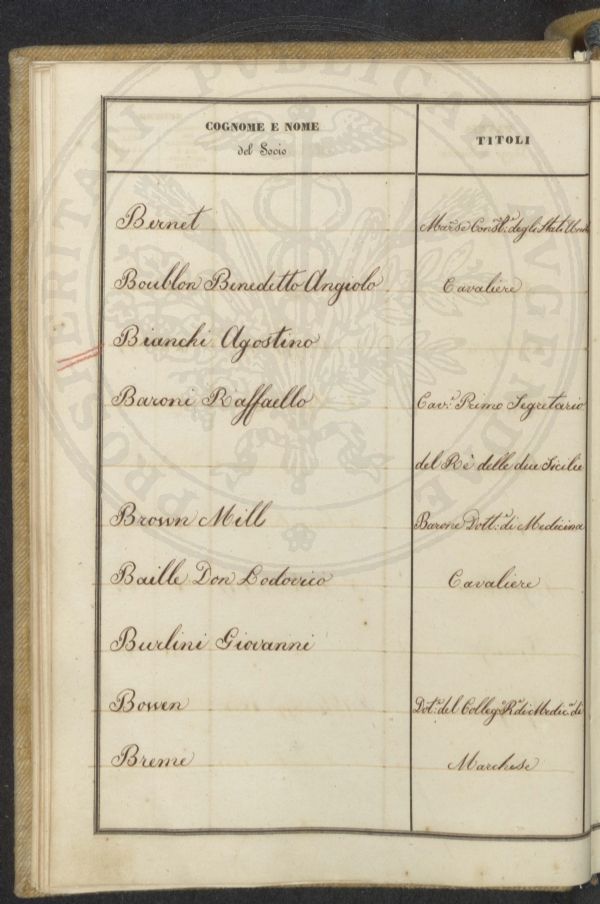 COGNOME E NOME
del Socio
TITOLI
Bernet
degli Stati Uniti
Boublon Benedetto Angiolo Cavaliere
Bianchi Agostino
Baroni Raffaello Cav.e Primo Segretario
del Rè delle due Sicilie
Brown Mill Barone Dott.e di Medicina
Baille Don Lodovico Cavaliere
Burlini Giovanni
Bowen Dot.e del Colleg.o R. di Medic.a di
Breme Marchese
PROSPERITATI PUBLICAE AUGENDAE